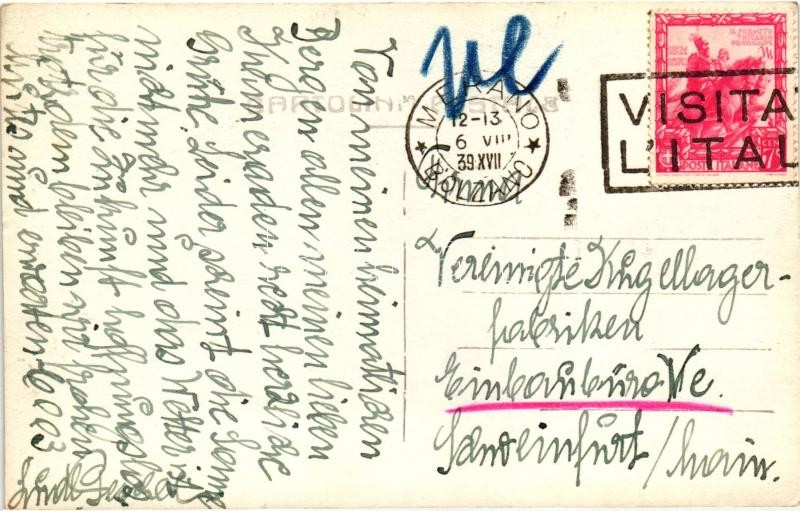 Von meinen heimatlichen
Bergen allen meinen lieben
Kameraden recht herzliche
Grüße. Leider scheint die Sonne
nicht mehr und das Wetter ist
für die Zukunft
trotzdem bleiben wir
und erwarten
Ve
MERANO
12-13
6 VIII
39 XVII
BOLZANO
VISITA
L'ITAL
POSTE ITALIANE
Firma
Vereinigte Kugellager-
fabriken
Einbaubüro Ve.
Schweinfurt / Main.